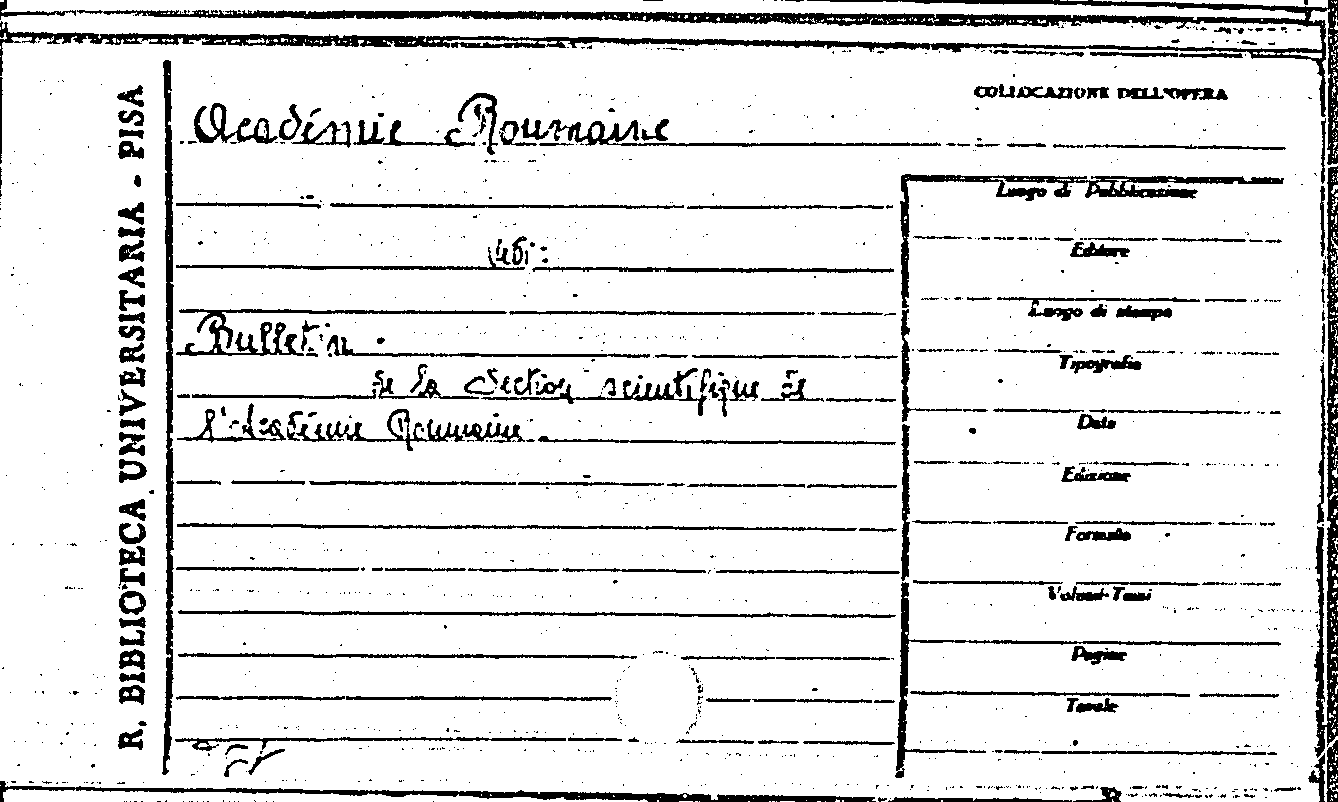 R. BIBLIOTECA UNIVERSITARIA - PISA
COLLOCAZIONE DELL'OPERA
Académie Roumaine
Luogo di Pubblicazione
Editore
Luogo di stampa
Bulletin
Tipografia
de la Section scientifique de
Data
l'Académie Roumaine.
Edizione
Formato
Volumi-Tomi
Pagine
Tavole